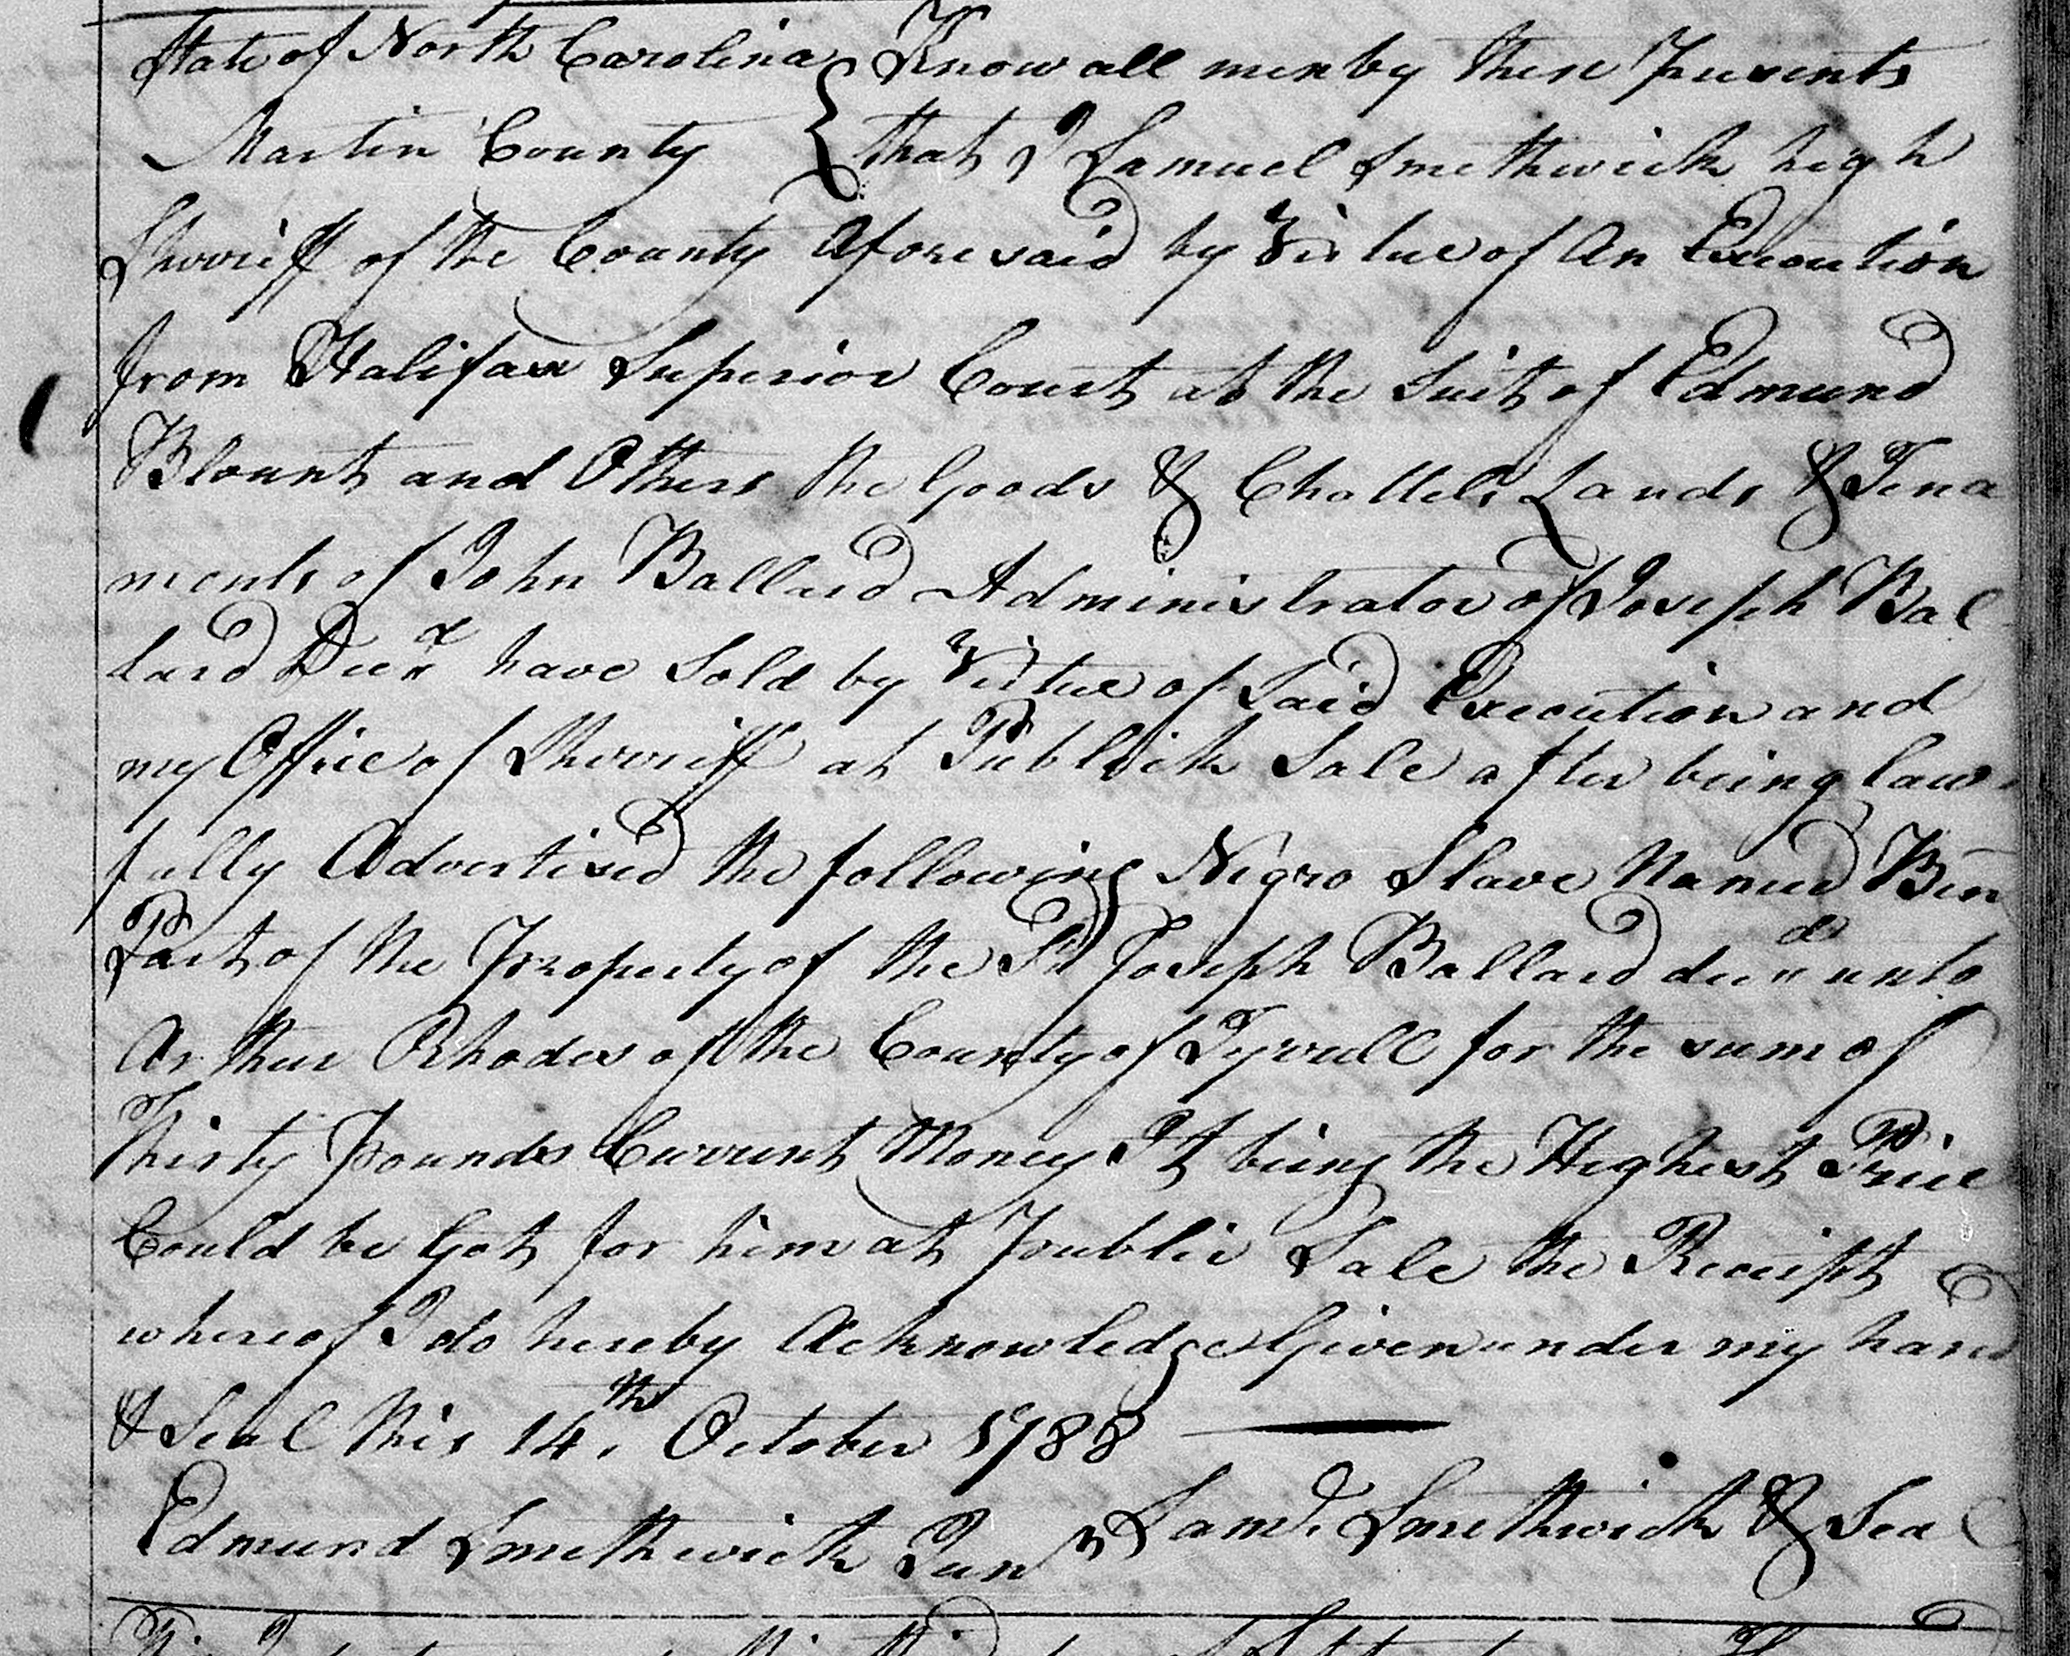 State of North Carolina } Know all men by these Presents
Martin County } that I Samuel Smethwick high
Sherriff of the County Aforesaid by Virtue of An Execution
from Halifax Superior Court at the Suit of Edmund
Blount and Others the Goods & Chattels Lands & Tena
ments of John Ballard Administrator of Joseph Bal
lard Decd have Sold by Virtue of Said Execution and
my Office of Sherriff at Publick Sale after being law
fully Advertised the following Negro Slave Named Ben
Part of the Property of the Sd Joseph Ballard decd unto
Arthur Rhodes of the County of Tyrrell for the sum of
Thirty Pounds Currunt Money It being the Highest Price
Could be Got for him at Public Sale the Receipt
whereof I do hereby Acknowledge Given under my hand
& Seal this 14th October 1788
Edmund Smethwick Junr Saml Smethwick & Seal